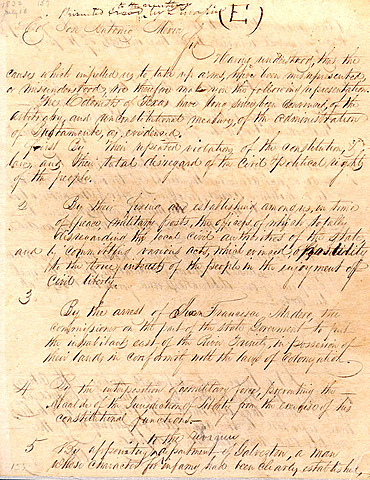 1832
July 18
137
to the
(E)
Col. Don Antonio Mexia
Sir
Having understood, that the
causes which impelled us to take up arms, have been misrepresented,
or misunderstood, we therefore make you the following representation.
The Colonists of Texas have long since been convinced, of the
arbitrary, and unconstitutional measures, of the administration
of Bustamante; as, evidenced.
First By Their repeated violations of the constitution, &
laws, and Their total disregard of the Civil & Political rights
of the people.
2 By their fixing and establishing among us, in time
of peace Military posts, the officers, of which totally
disregarding the local civil authorities of the State,
and by committing various acts, which evinced, opposition
to the true interest of the people in the enjoyment of
Civil liberty.
3
By the arrest of Juan Francisco, Madero, the
commissioner on the part of the State Government to put
the inhabitants east of the River Trinity, in possession of
their lands in conformity with the laws of Colonization.
4 By the interposition of a military force, preventing the
Alcalde of the Jurisdiction of Liberty from the exercise of his
constitutional functions.
5 to the
By appointing department of Galveston, a man
whose character for infamy had been clearly established,